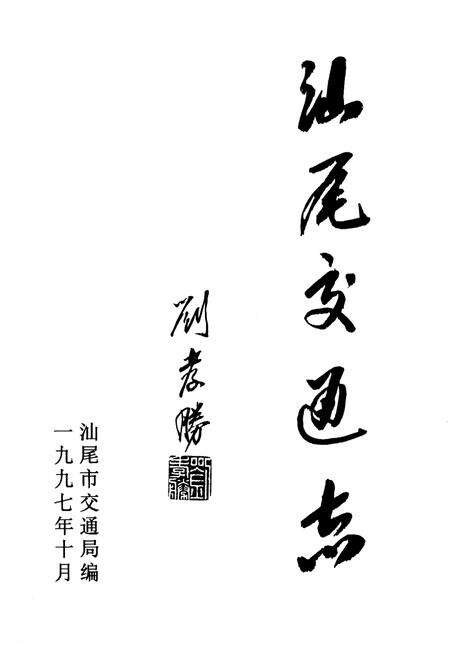 汕尾交通志
劉孝勝
汕尾市交通局编
一九九七年十月